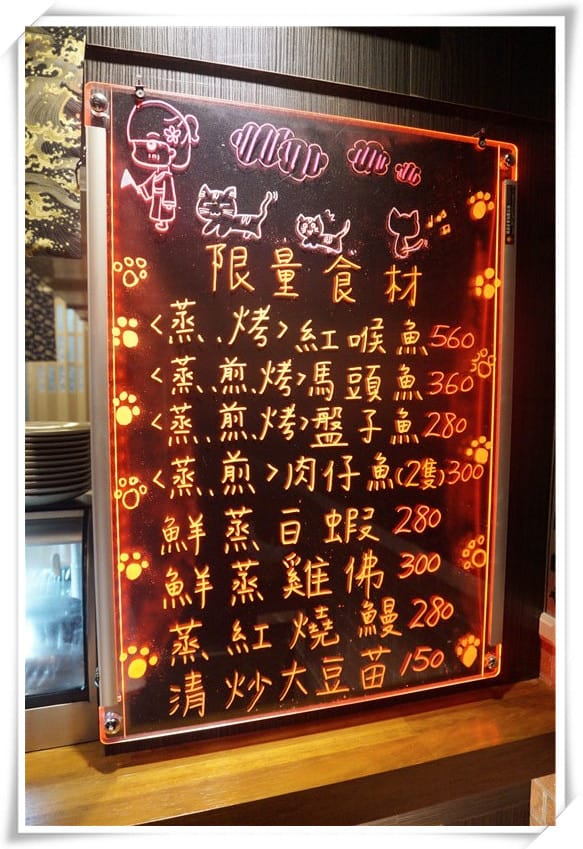 限量食材
<蒸.烤>紅喉魚560
<蒸.煎.烤>馬頭魚360
<蒸.煎.烤>盤子魚280
<蒸.煎>肉仔魚(2隻)300
鮮蒸白蝦280
鮮蒸雞佛300
蒸紅燒鰻280
清炒大豆苗150